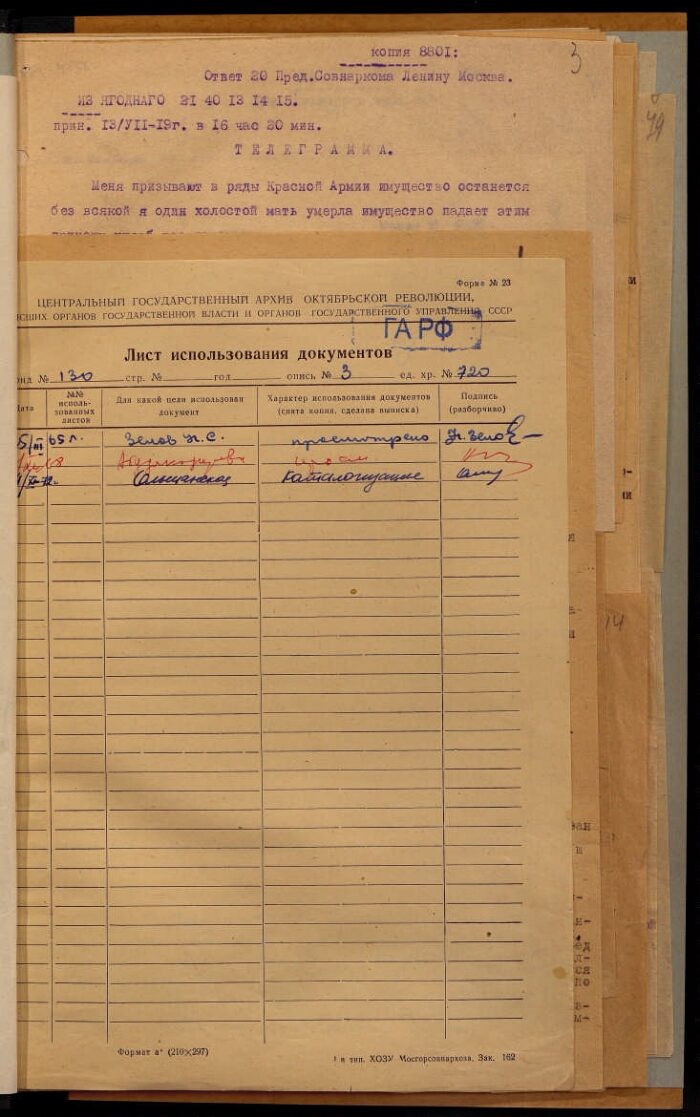 копия 8801:
3
Ответ 20 Пред.Совнаркома Ленину Москва.
ИЗ ЯГОДНАГО 21 40 13 14 15.
прин. 13/УІІ-19г. в 16 час 20 мин.
ТЕЛЕГРАММА.
Меня призывают в ряды Красной Армии имущество останется
без всякой я один холостой мать умерла имущество падает этим
Форма № 23
ЦЕНТРАЛЬНЫЙ ГОСУДАРСТВЕННЫЙ АРХИВ ОКТЯБРЬСКОЙ РЕВОЛЮЦИИ,
ГАРФ
СШИХ ОРГАНОВ ГОСУДАРСТВЕННОЙ ВЛАСТИ И ОРГАНОВ ГОСУДАРСТВЕННОГО УПРАВЛЕНИЯ СССР
Лист использования документов
онд № 130 стр. № год опись № 3 ед. хр. № 720
Дата №№ исполь-зованных листов Для какой цели использован документ Характер использования документов (снята копия, сделана выписка) Подпись (разборчиво)
5/III 65 г. Зелов Н.С. просмотрено Н. Зелов
каталогизация
Формат а⁴ (210×297)
1 я тип. ХОЗУ Мосгорсовнархоза, Зак. 162